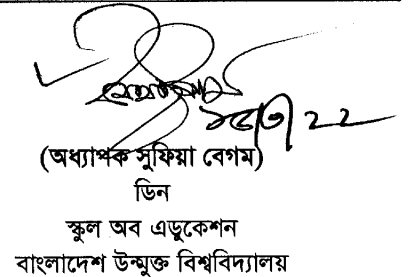 (অধ্যাপক সুফিয়া বেগম)
ডিন
স্কুল অব এডুকেশন
বাংলাদেশ উন্মুক্ত বিশ্ববিদ্যালয়